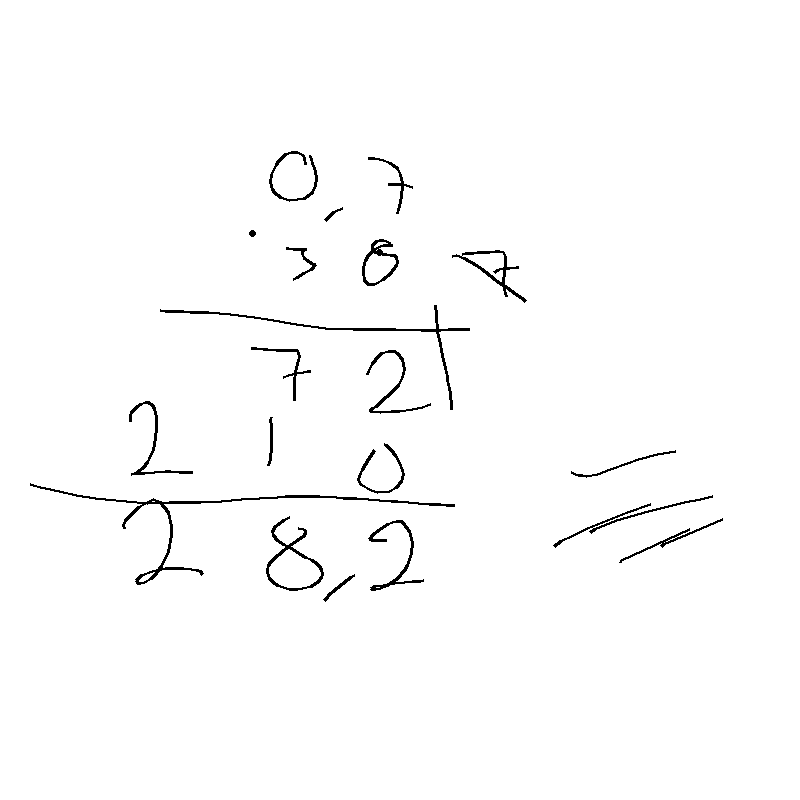 0,7
· 38 7
72
210
28,2